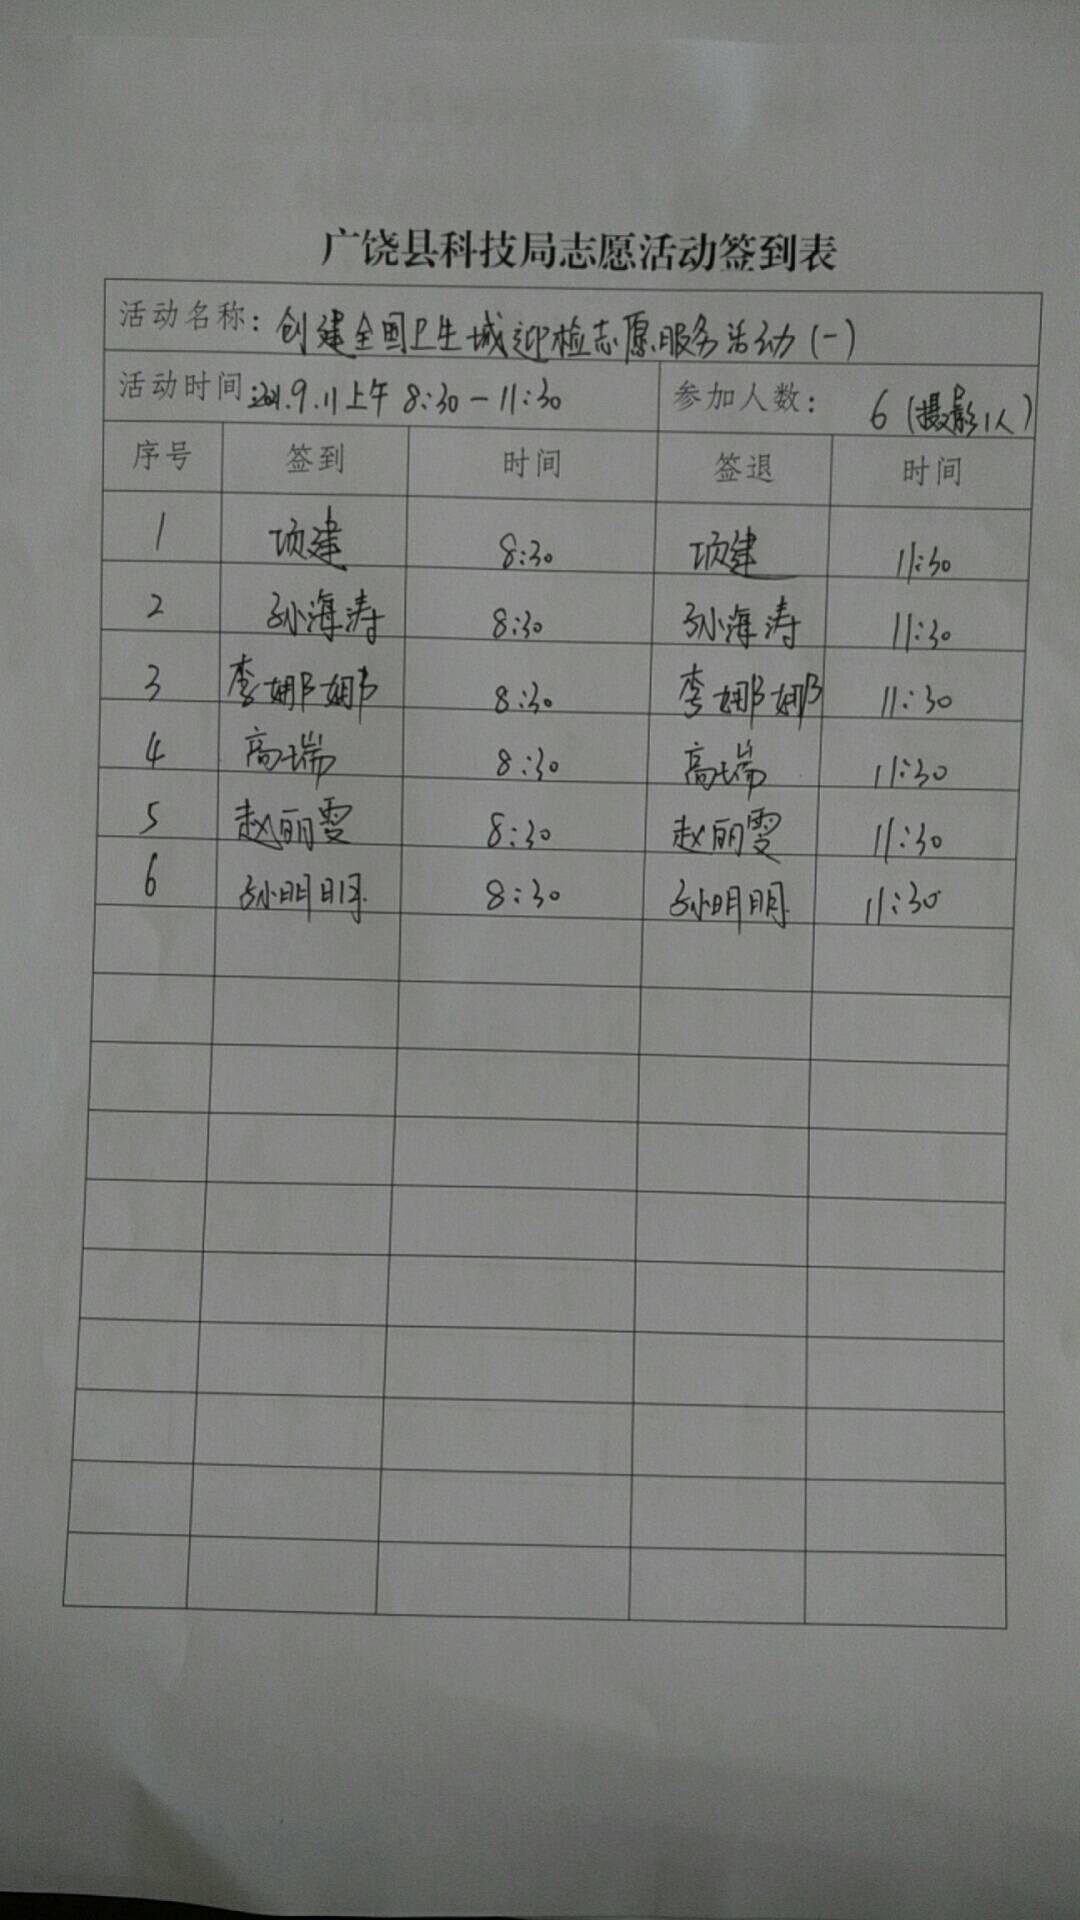 广饶县科技局志愿活动签到表
活动名称：创建全国卫生城迎检志愿服务活动(一)
活动时间：2021.9.11上午 8:30－11:30 参加人数： 6 (摄影1人)
序号 签到 时间 签退 时间
1 项建 8:30 项建 11:30
2 孙海涛 8:30 孙海涛 11:30
3 李娜娜 8:30 李娜娜 11:30
4 高瑞 8:30 高瑞 11:30
5 赵丽雯 8:30 赵丽雯 11:30
6 孙明明 8:30 孙明明 11:30